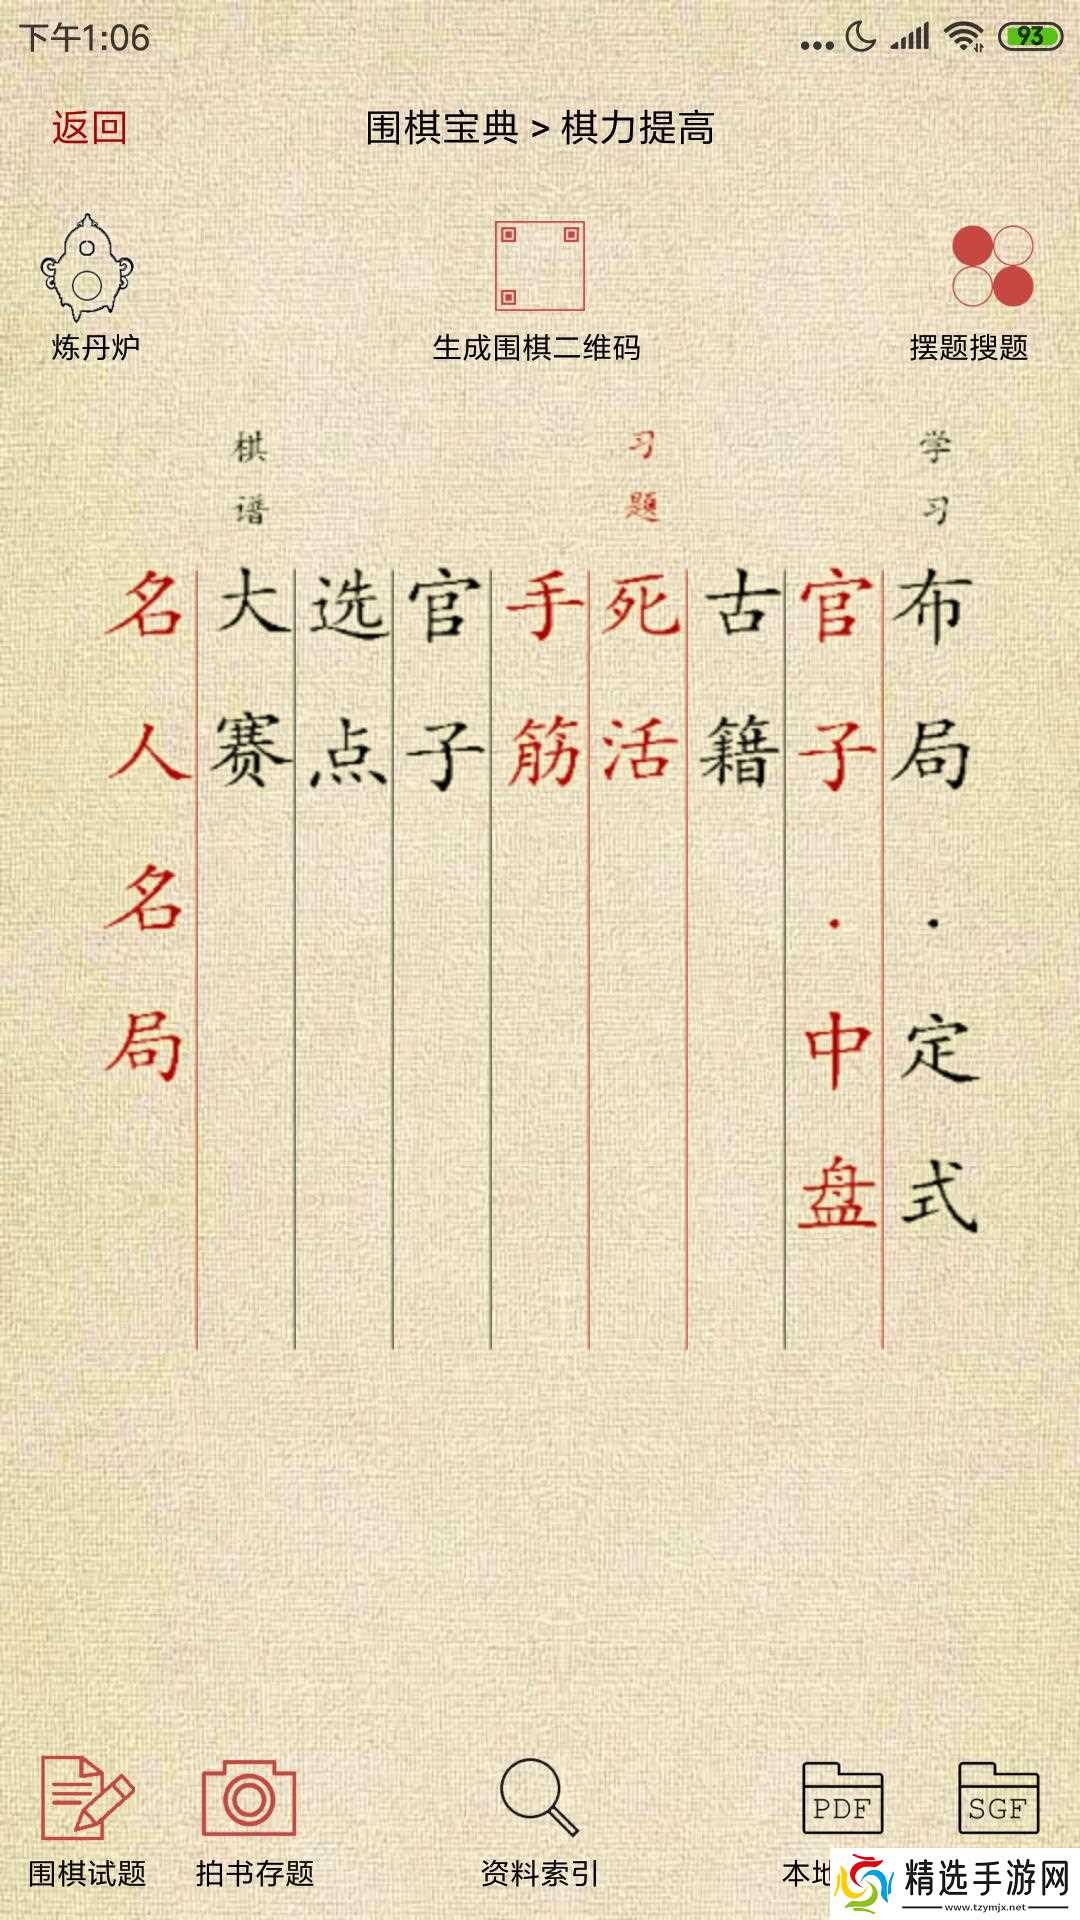 下午1:06
93
返回
围棋宝典 > 棋力提高
炼丹炉
生成围棋二维码
摆题搜题
学习
习题
棋谱
布局·定式
官子·中盘
古籍
死活
手筋
官子
选点
大赛
名人名局
PDF
SGF
围棋试题
拍书存题
资料索引
本地
精选手游网
www.tzymjx.net